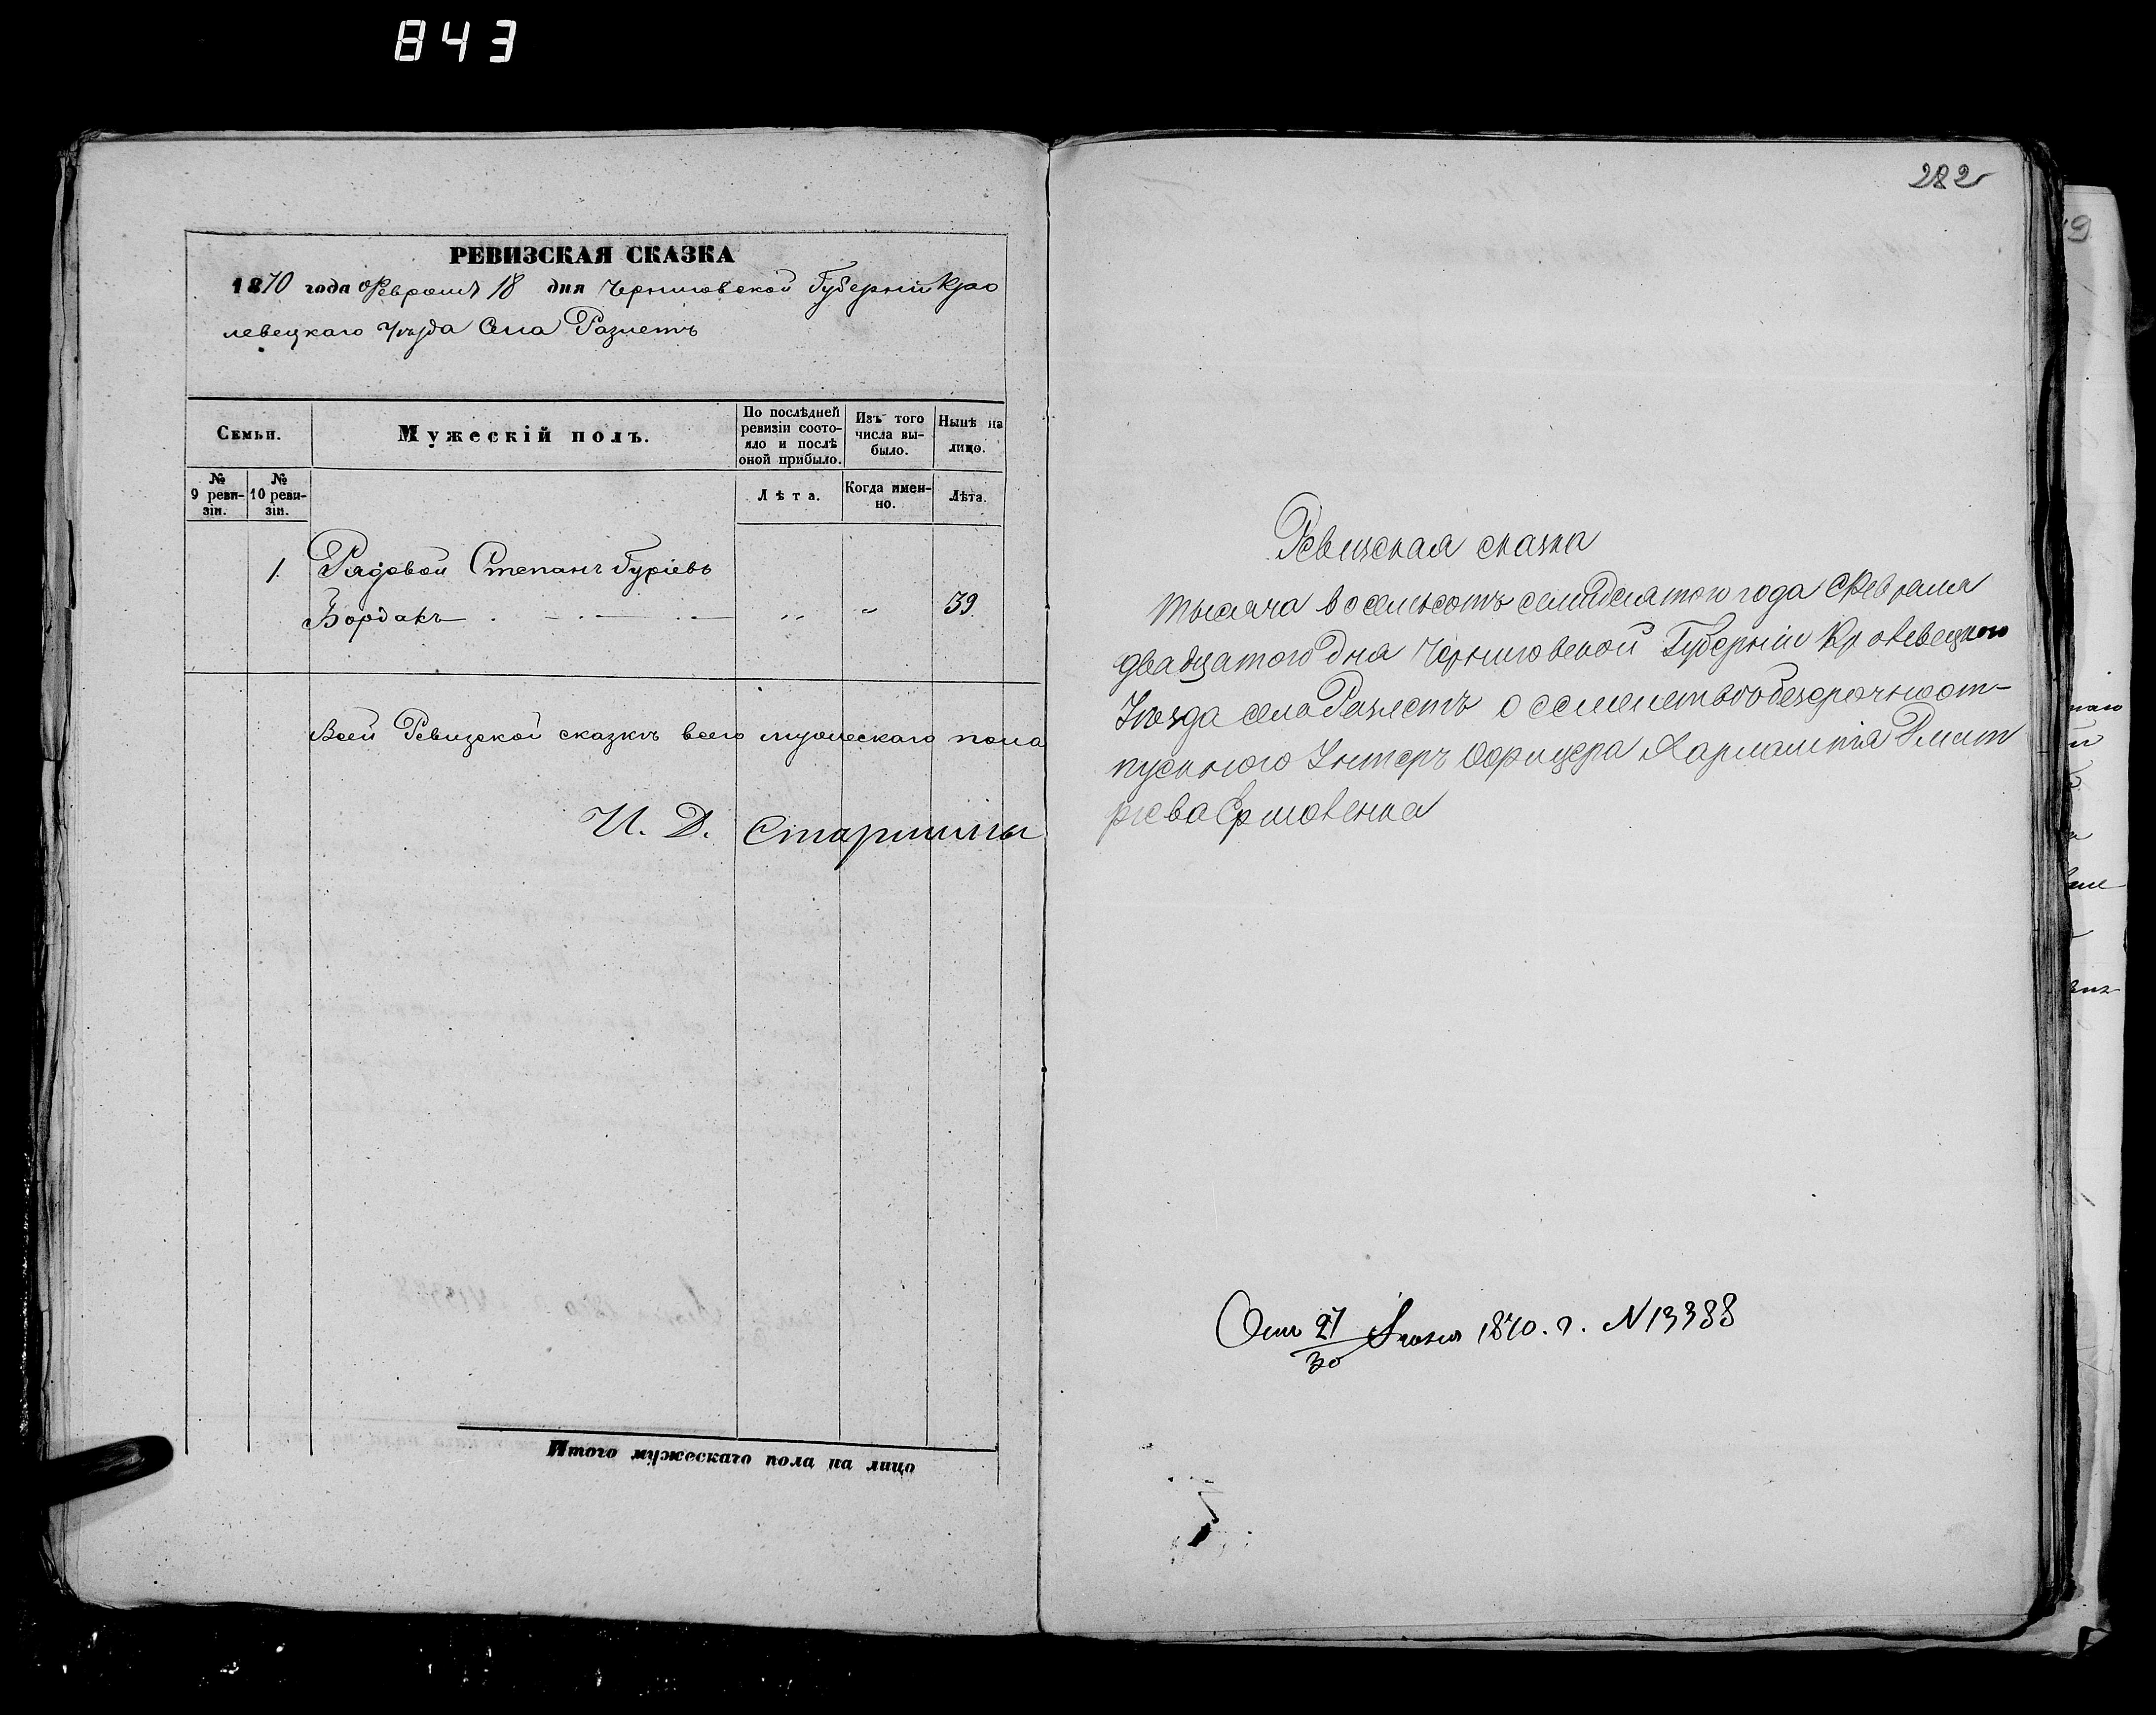 843
РЕВИЗСКАЯ СКАЗКА
1870 года Февраля 18 дня Черниговской Губерніи Кро
левецкаго Уѣзда Села Разлетъ
Семьи.
Мужескій полъ.
По послѣдней ревизіи состояло и послѣ оной прибыло.
Изъ того числа выбыло.
Нынѣ на лицо.
№ 9 ревизіи.
№ 10 ревизіи.
Лѣта.
Когда именно.
Лѣта.
1. Рядовой Степанъ Гуріевъ
Бордакъ " " 39
Всей Ревизской сказкѣ всего мужескаго пола
И. Д. Старшины
Итого мужескаго пола на лицо
282
Ревизская сказка
тысяча восемьсотъ семидесятого года Февраля
двадцатого дня Черниговской Губерніи Кролевецкого
Уѣзда села Разлетъ о семействѣ безсрочноот-
пускного Унтеръ Офицера Хармантія Дмит
ріева Ермоленка
От 27/30 1870. г. N 13388